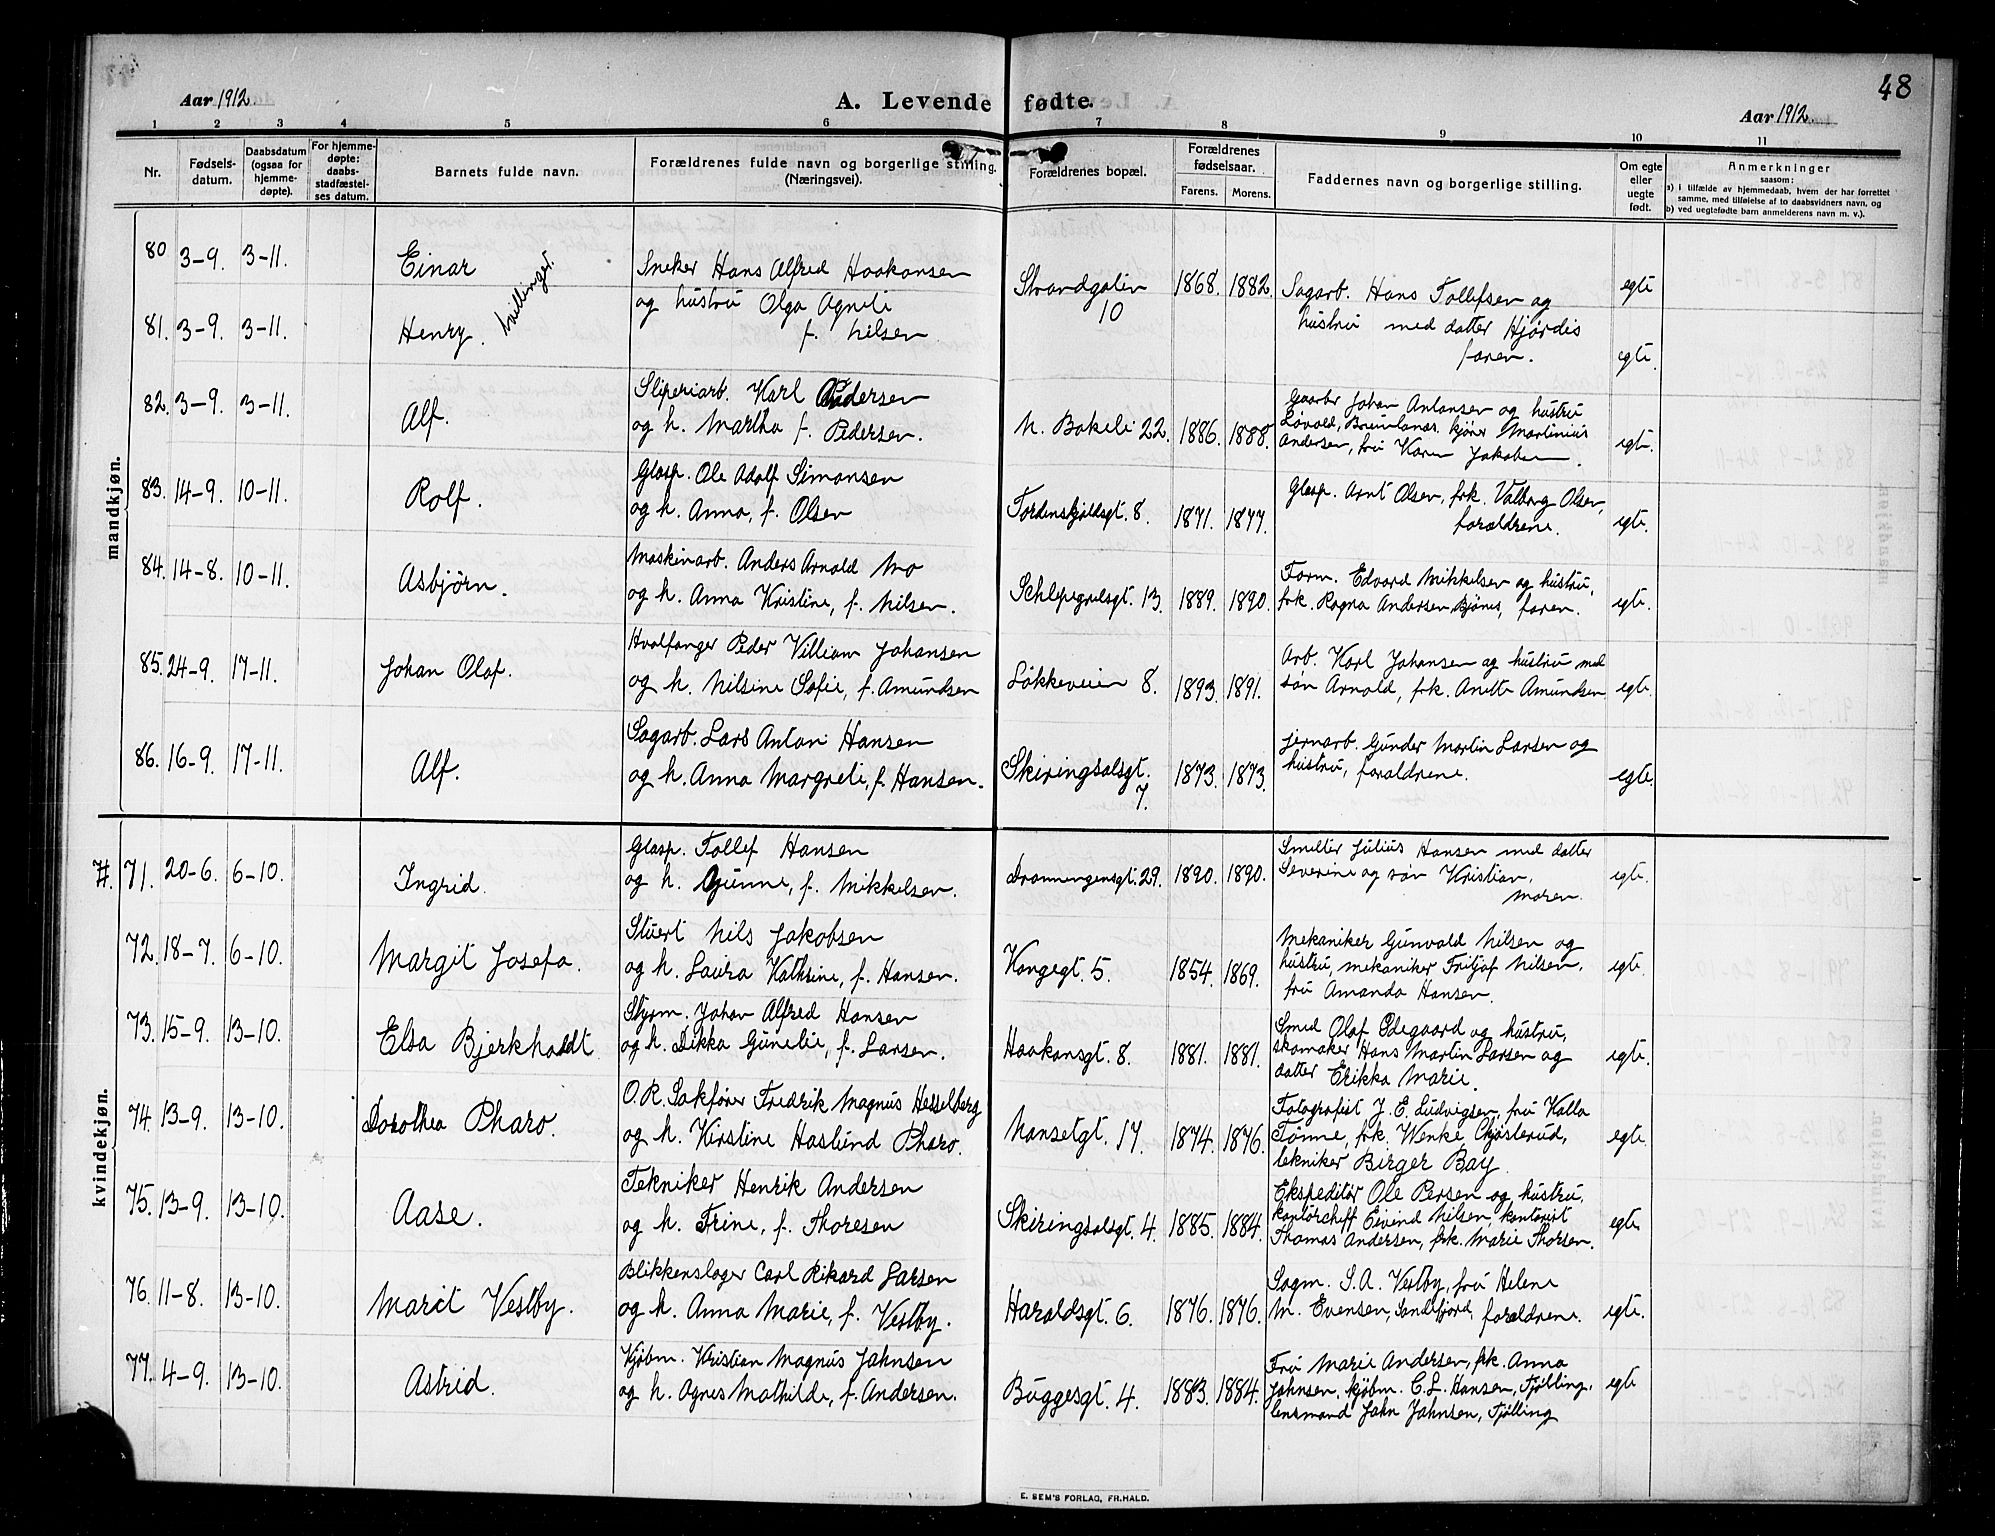 48
Aar 1912.
A. Levende fødte.
Aar 1912.
1 2 3 4 5 6 7 8 9 10 11
Nr.
Fødsels-
datum.
Daabsdatum
(ogsaa for
hjemme-
døpte).
For hjemme-
døpte:
daabs-
stadfæstel-
ses datum.
Barnets fulde navn.
Forældrenes fulde navn og borgerlige stilling.
(Næringsvei).
Forældrenes bopæl.
Forældrenes
fødselsaar.
Farens. Morens.
Faddernes navn og borgerlige stilling.
Om egte
eller
uegte
født.
Anmerkninger
saasom:
a) i tilfælde av hjemmedaab, hvem der har forrettet
samme, med tilføielse af to daabsvidners navn, og
b) ved uegtefødte barn anmelderens navn m. v.).
mandkjøn.
80 3-9. 3-11. Einar
tvillinger.
Sneker Hans Alfred Haakonsen
og hustru Olga Agnete
f. Nilsen.
Strandgaten
10
1868. 1882.
Sagarb. Hans Tollefsen og
hustru med datter Hjørdis
faren.
egte
81. 3-9. 3-11. Henry.
egte.
82. 3-9. 3-11. Alf.
Sliperiarb. Karl Pedersen
og h. Martha f. Pedersen.
N. Bakeli 22. 1886. 1888.
Gaarbr Johan Antonsen og hustru
Løvald, Brunlanæs. kjører Martinius
Andersen, fru Karen Jakobsen.
egte.
83. 14-9. 10-11. Rolf.
Glasp. Ole Adolf Simonsen
og h. Anna, f. Olsen
Tordenskjoldsgt. 8. 1871. 1877.
Glasp. Arnt Olsen, frk. Valborg Olsen,
forældrene.
egte.
84. 14-8. 10-11. Asbjørn.
Maskinarb. Anders Arnold Mo
og h. Anna Kristine, f. Nilsen.
Schlepegrelsgt. 13. 1889. 1890.
Form. Edvard Mikkelsen og hustru,
frk. Ragna Andersen, Bjønes, faren.
egte.
85. 24-9. 17-11. Johan Olaf.
Hvalfanger Peder Villiam Johansen
og h. Nilsine Sofie, f. Amundsen
Løkkeveien 8. 1893. 1891.
Arb. Karl Johansen og hustru med
søn Arnold, frk. Anette Amundsen
egte.
86. 16-9. 17-11. Alf.
Sagarb. Lars Anton Hansen
og h. Anna Margrete, f. Hansen.
Skiringsalsgt.
7.
1873. 1873.
jernarb. Gunder Martin Larsen og
hustru, forældrene.
egte.
kvindekjøn.
71. 20-6. 6-10. Ingrid.
Glasp. Tollef Hansen
og h. Gunne, f. Mikkelsen.
Dronningensgt. 29. 1890. 1890.
Smelter Julius Hansen med datter
Severine og søn Kristian,
moren.
egte.
72. 18-7. 6-10. Margit Josefa.
Stuert Nils Jakobsen
og h. Laura Kathrine, f. Hansen.
Kongegt. 5. 1854. 1869.
Mekaniker Gunvald Nilsen og
hustru, mekaniker Fritjof Nilsen,
fru Amanda Hansen.
egte.
73. 15-9. 13-10. Elsa Bjerkholdt
Styrm. Johan Alfred Hansen
og h. Dikka Gunelie, f. Larsen.
Haakonsgt. 8. 1881. 1881.
Smed Olaf Ødegaard og hustru,
skomaker Hans Martin Larsen og
datter Erikka Marie.
egte.
74. 13-9. 13-10. Dorothea Pharo.
O.R. Sakfører Fredrik Magnus Hesselberg
og h. Kirstine Haslund Pharo.
Nansetgt. 17. 1874. 1876.
Fotografist J. E. Ludvigsen, fru Kalla
Tønne, frk. Wenke Chjøsterud,
tekniker Birger Bay.
egte.
75. 13-9. 13-10. Aase.
Tekniker Henrik Andersen
og h. Trine, f. Thoresen
Skiringsalsgt. 4. 1885. 1884.
Ekspeditør Ole Persen og hustru,
kontorcheff Eivind Nilsen, kontorist
Thomas Andersen, frk. Marie Thorsen.
egte
76. 11-8. 13-10. Marit Vestby.
Blikkenslager Carl Rikard Larsen
og h. Anna Marie, f. Vestby.
Haraldsgt. 6. 1876. 1876.
Sagm. S. A. Vestby, fru Helene
M. Evensen, Sandefjord, forældrene.
egte.
77. 4-9. 13-10. Astrid.
Kjøbm. Kristian Magnus Johnsen
og h. Agnes Mathilde, f. Andersen.
Buggesgt. 4. 1883. 1884.
Fru Marie Andersen, frk. Anna
Johnsen, kjøbm. C. L. Hansen, Tjølling,
lensmand John Johnsen, Tjølling
egte
E. SEM'S FORLAG, FR.HALD.